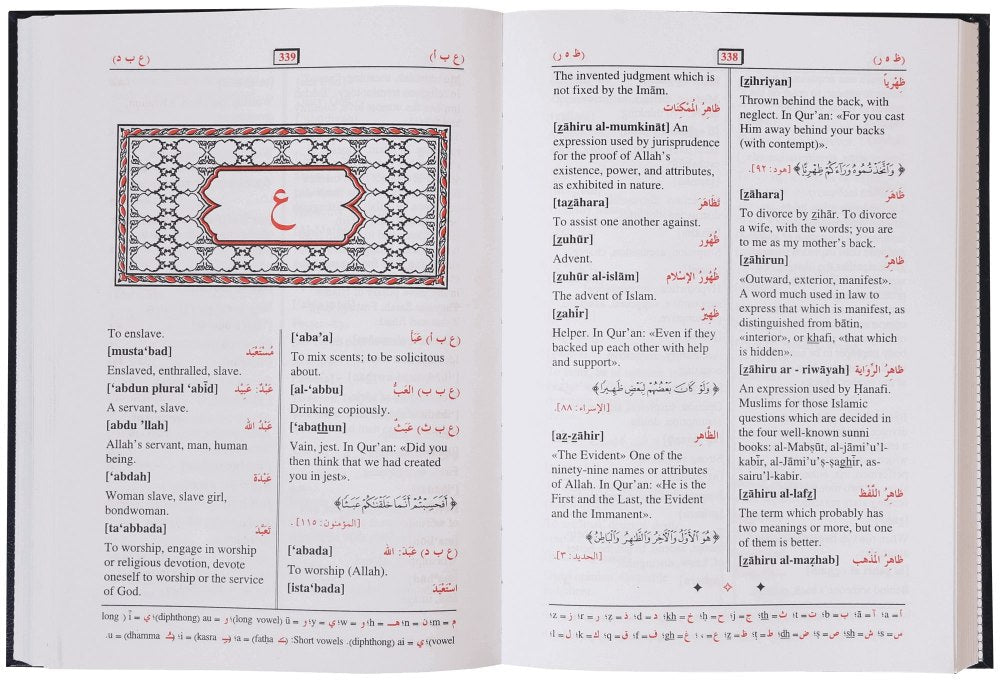 (ظ ه ر) 338 (ظ ه ر)
[zihriyan] ظِهْرِياً
Thrown behind the back, with
neglect. In Qur'an: «For you cast
Him away behind your backs
(with contempt)».
﴿ وَٱتَّخَذْتُمُوهُ وَرَآءَكُمْ ظِهْرِيًّا ﴾ [هود: ٩٢].
[zāhara] ظَاهَرَ
To divorce by zihār. To divorce
a wife, with the words; you are
to me as my mother's back.
[zāhirun] ظاهِرٌ
«Outward, exterior, manifest».
A word much used in law to
express that which is manifest, as
distinguished from bātin,
«interior», or khafi, «that which
is hidden».
[zāhiru ar - riwāyah] ظاهِرُ الرِّوَايَة
An expression used by Ḥanafi.
Muslims for those Islamic
questions which are decided in
the four well-known sunni
books: al-Mabsụ̄t, al-jāmi'u'l-
kabīr, al-Jāmi'u'ṣ-ṣaghīr, as-
sairu'l-kabir.
[zāhiru al-lafz] ظاهِرُ اللَّفْظ
The term which probably has
two meanings or more, but one
of them is better.
[zāhiru al-mazhab] ظاهِرُ المَذْهَب
The invented judgment which is
not fixed by the Imām.
ظاهِرُ المُمْكِنَات
[zāhiru al-mumkināt] An
expression used by jurisprudence
for the proof of Allah's
existence, power, and attributes,
as exhibited in nature.
[tazāhara] تَظَاهَرَ
To assist one another against.
[zuhūr] ظُهُور
Advent.
[zuhūr al-islām] ظُهُورُ الإِسْلام
The advent of Islam.
[zahīr] ظَهِيرٌ
Helper. In Qur'an: «Even if they
backed up each other with help
and support».
﴿ وَلَوْ كَانَ بَعْضُهُمْ لِبَعْضٍ ظَهِيرًا ﴾
[الإسراء: ٨٨].
[az-zāhir] الظَّاهِر
«The Evident» One of the
ninety-nine names or attributes
of Allah. In Qur'an: «He is the
First and the Last, the Evident
and the Immanent».
﴿ هُوَ ٱلْأَوَّلُ وَٱلْآخِرُ وَٱلظَّٰهِرُ وَٱلْبَاطِنُ ﴾
[الحديد: ٣].
أ = a؛ آ = ā؛ ب = b؛ ت = t؛ ث = th؛ ج = j؛ ح = ḥ؛ خ = kh؛ د = d؛ ذ = z؛ ر = r؛ ز = z؛
س = s؛ ش = sh؛ ص = ṣ؛ ض = dh؛ ط = ṭ؛ ظ = z؛ ع = ‘؛ غ = gh؛ ف = f؛ ق = q؛ ك = k؛ ل = l؛
(ع ب أ) 339 (ع ب د)
ع
[‘aba’a] (ع ب أ) عَبَأَ
To mix scents; to be solicitous
about.
[al-‘abbu] (ع ب ب) العَبُّ
Drinking copiously.
[‘abathun] (ع ب ث) عَبَثٌ
Vain, jest. In Qur'an: «Did you
then think that we had created
you in jest».
﴿ أَفَحَسِبْتُمْ أَنَّمَا خَلَقْنَٰكُمْ عَبَثًا ﴾
[المؤمنون: ١١٥].
[‘abada] (ع ب د) عَبَدَ: الله
To worship (Allah).
[ista‘bada] اسْتَعْبَدَ
To enslave.
[musta‘bad] مُسْتَعْبَد
Enslaved, enthralled, slave.
[‘abdun plural ‘abīd] عَبْدٌ: عَبِيْد
A servant, slave.
[abdu ’llah] عَبْدُ الله
Allah's servant, man, human
being.
[‘abdah] عَبْدَة
Woman slave, slave girl,
bondwoman.
[ta‘abbada] تَعَبَّدَ
To worship, engage in worship
or religious devotion, devote
oneself to worship or the service
of God.
م = m؛ ن = n؛ هـ = h؛ و = w؛ ي = y؛ و = ū (long vowel)؛ و = au (diphthong)؛ ي = ī (long
vowel)؛ ي = ai (diphthong). Short vowels: ـَ = a (fatḥa)؛ ـِ = i (kasra)؛ ـُ = u (dhamma).